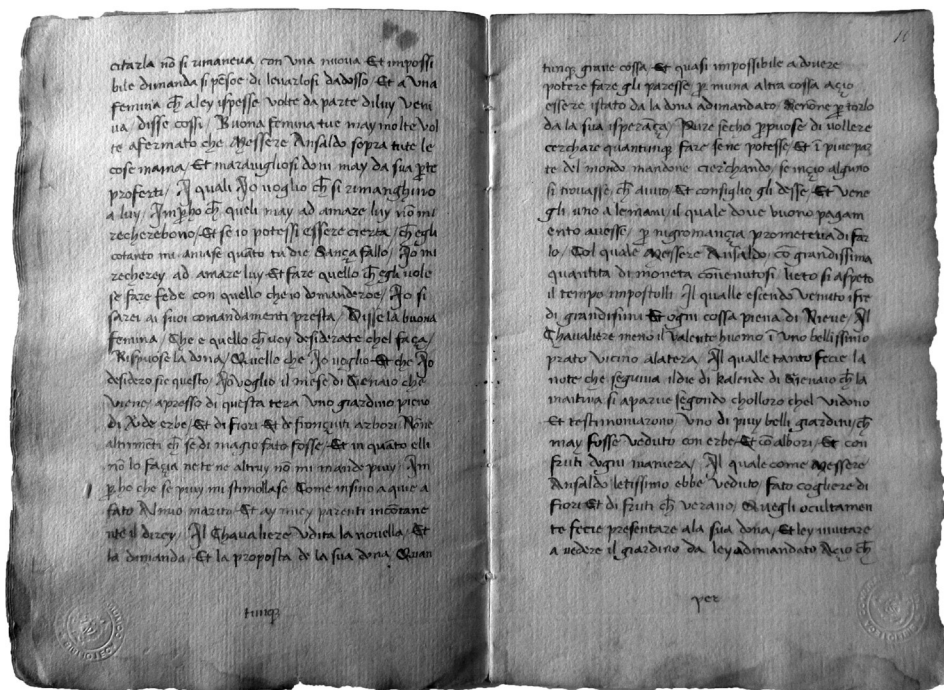 citarla nō si rimaneva con una nuova Et impossi
bile dimanda si pēsoe di levarlosi dadosso Et a una
femina ch̄ a ley ispesse volte da parte di luy veni
va, disse cossi / Buona femina tue may molte vol
te afermato che Messere Ansaldo sopra tute le
cose mama, Et maravigliosi doni may da sua pte
proferti / I quali Io voglio ch̄ si rimanghino
a luy / Imp̄ho ch̄ queli may ad amare luy nō mi
recherebono / Et se io potessi essere cierta / ch̄ egli
cotanto mi amase quāto tu die Sança fallo / Io mi
recherey ad amare luy Et fare quello ch̄ egli vole
se fare fede con quello che io domanderoe / Io si
sarei ai suoi comandamenti presta / Disse la buona
femina / Che e quello ch̄ voy desiderate chel faça /
Rispuose la dona / Quello che Io voglio Et che Io
desidero sie questo / Io voglio il mese di Gienaio che
viene apresso di questa tera Uno giardino pieno
di Verde erbe / Et di fiori Et de fronçuti arbori Nōne
altrimēti ch̄ se di magio fato fosse / Et in quāto elli
nō lo façia ne te ne altruy nō mi mande piuy / Im
p̄ho che se piuy mi stimollase Come insino a quie a
fato Al mio marito Et ay miey parenti incōtane
nte il direy / Il Chavaliere Udita la novella / Et
la dimanda / Et la proposta de la sua dona, Quan
tunq̄
tunq̄ grave cossa Et quasi impossibile a dovere
potere fare gli paresse p̄ niuna altra cossa Açio
essere istato da la dona adimandato Nenone p̄ torlo
da la sua isperāça / Pure secho p̄puose di vollere
cerchare quantunq̄ fare se ne potesse / Et ī piue par
te del mondo mandoe cierchando / se inçio alguno
si trovasse, ch̄ aiuto / Et consiglio gli desse / Et vene
gli uno a le mani, il quale dove buono pagam
ento avesse, p̄ nigromançia prometeva di far
lo / Col quale Messere Ansaldo cō grandissima
quantita di moneta cōvenutosi, lieto si aspeto
il tempo impostolli Il qualle esiendo venuto i fre
di grandissimi Et ogni cossa piena di Nieve / Il
Chavaliere meno il valente huomo ī Uno bellissimo
prato vicino a la tera / Il qualle tanto fecie la
note che seguiva il die di kalende di Gienaio ch̄ la
maitina si aparve segondo cholloro chel vidono
Et testimoniarono Uno di piuy belli giardini / ch̄
may fosse veduto con erbe Et cō albori / Et con
fruti dogni maniera / Il quale come Messere
Ansaldo letissimo ebbe veduto / fato cogliere di
fiori Et di fruti ch̄ verano, Quegli ocultamen
te fecie presentare a la sua dona, Et ley invitare
a vedere il giardino da ley adimandato Açio ch̄
per